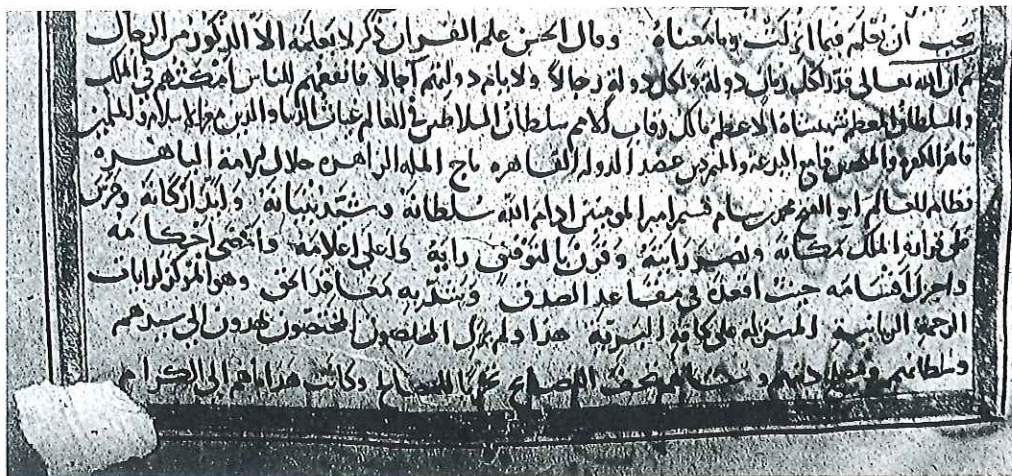 يجب ان تعلم فيما انزلت وما معناه وقال الحسن علم القران ذكر لا يعلمه الا الذكور من الرجال
ثم ان الله تعالى قدر لكل زمان دولة ولكل دولة رجالا ولايام دولتهم آجالا فانفعهم للناس امكنهم في الملك
والسلطان المعظم شهنشاه الاعظم مالك رقاب الامم سلطان السلاطين في العالم غياث الدنيا والدين معز الاسلام والمسلمين
قاهر الكفرة والملحدين قامع البدعة والمتمردين عضد الدولة القاهرة تاج الملة الزاهرة جلال الامة الباهرة
نظام العالم ابو الفتح محمد بن سام قسيم امير المومنين ادام الله سلطانه وشيد بنيانه وايد اركانه
على الملك مكانه ونصر رايته وقرن بالتوفيق رايه واعلى اعلامه وامضى احكامه
واجزل اقسامه حيث اقعده في مقاعد الصدق وشد به معاقد الحق وهو المركز لرايات
الرحمة الربانية المنزلة على كافة البرية هذا ولم يزل المخلصون المختصون يهدون الى سيدهم
وسلطانهم وكانت هداياهم الى الكرام